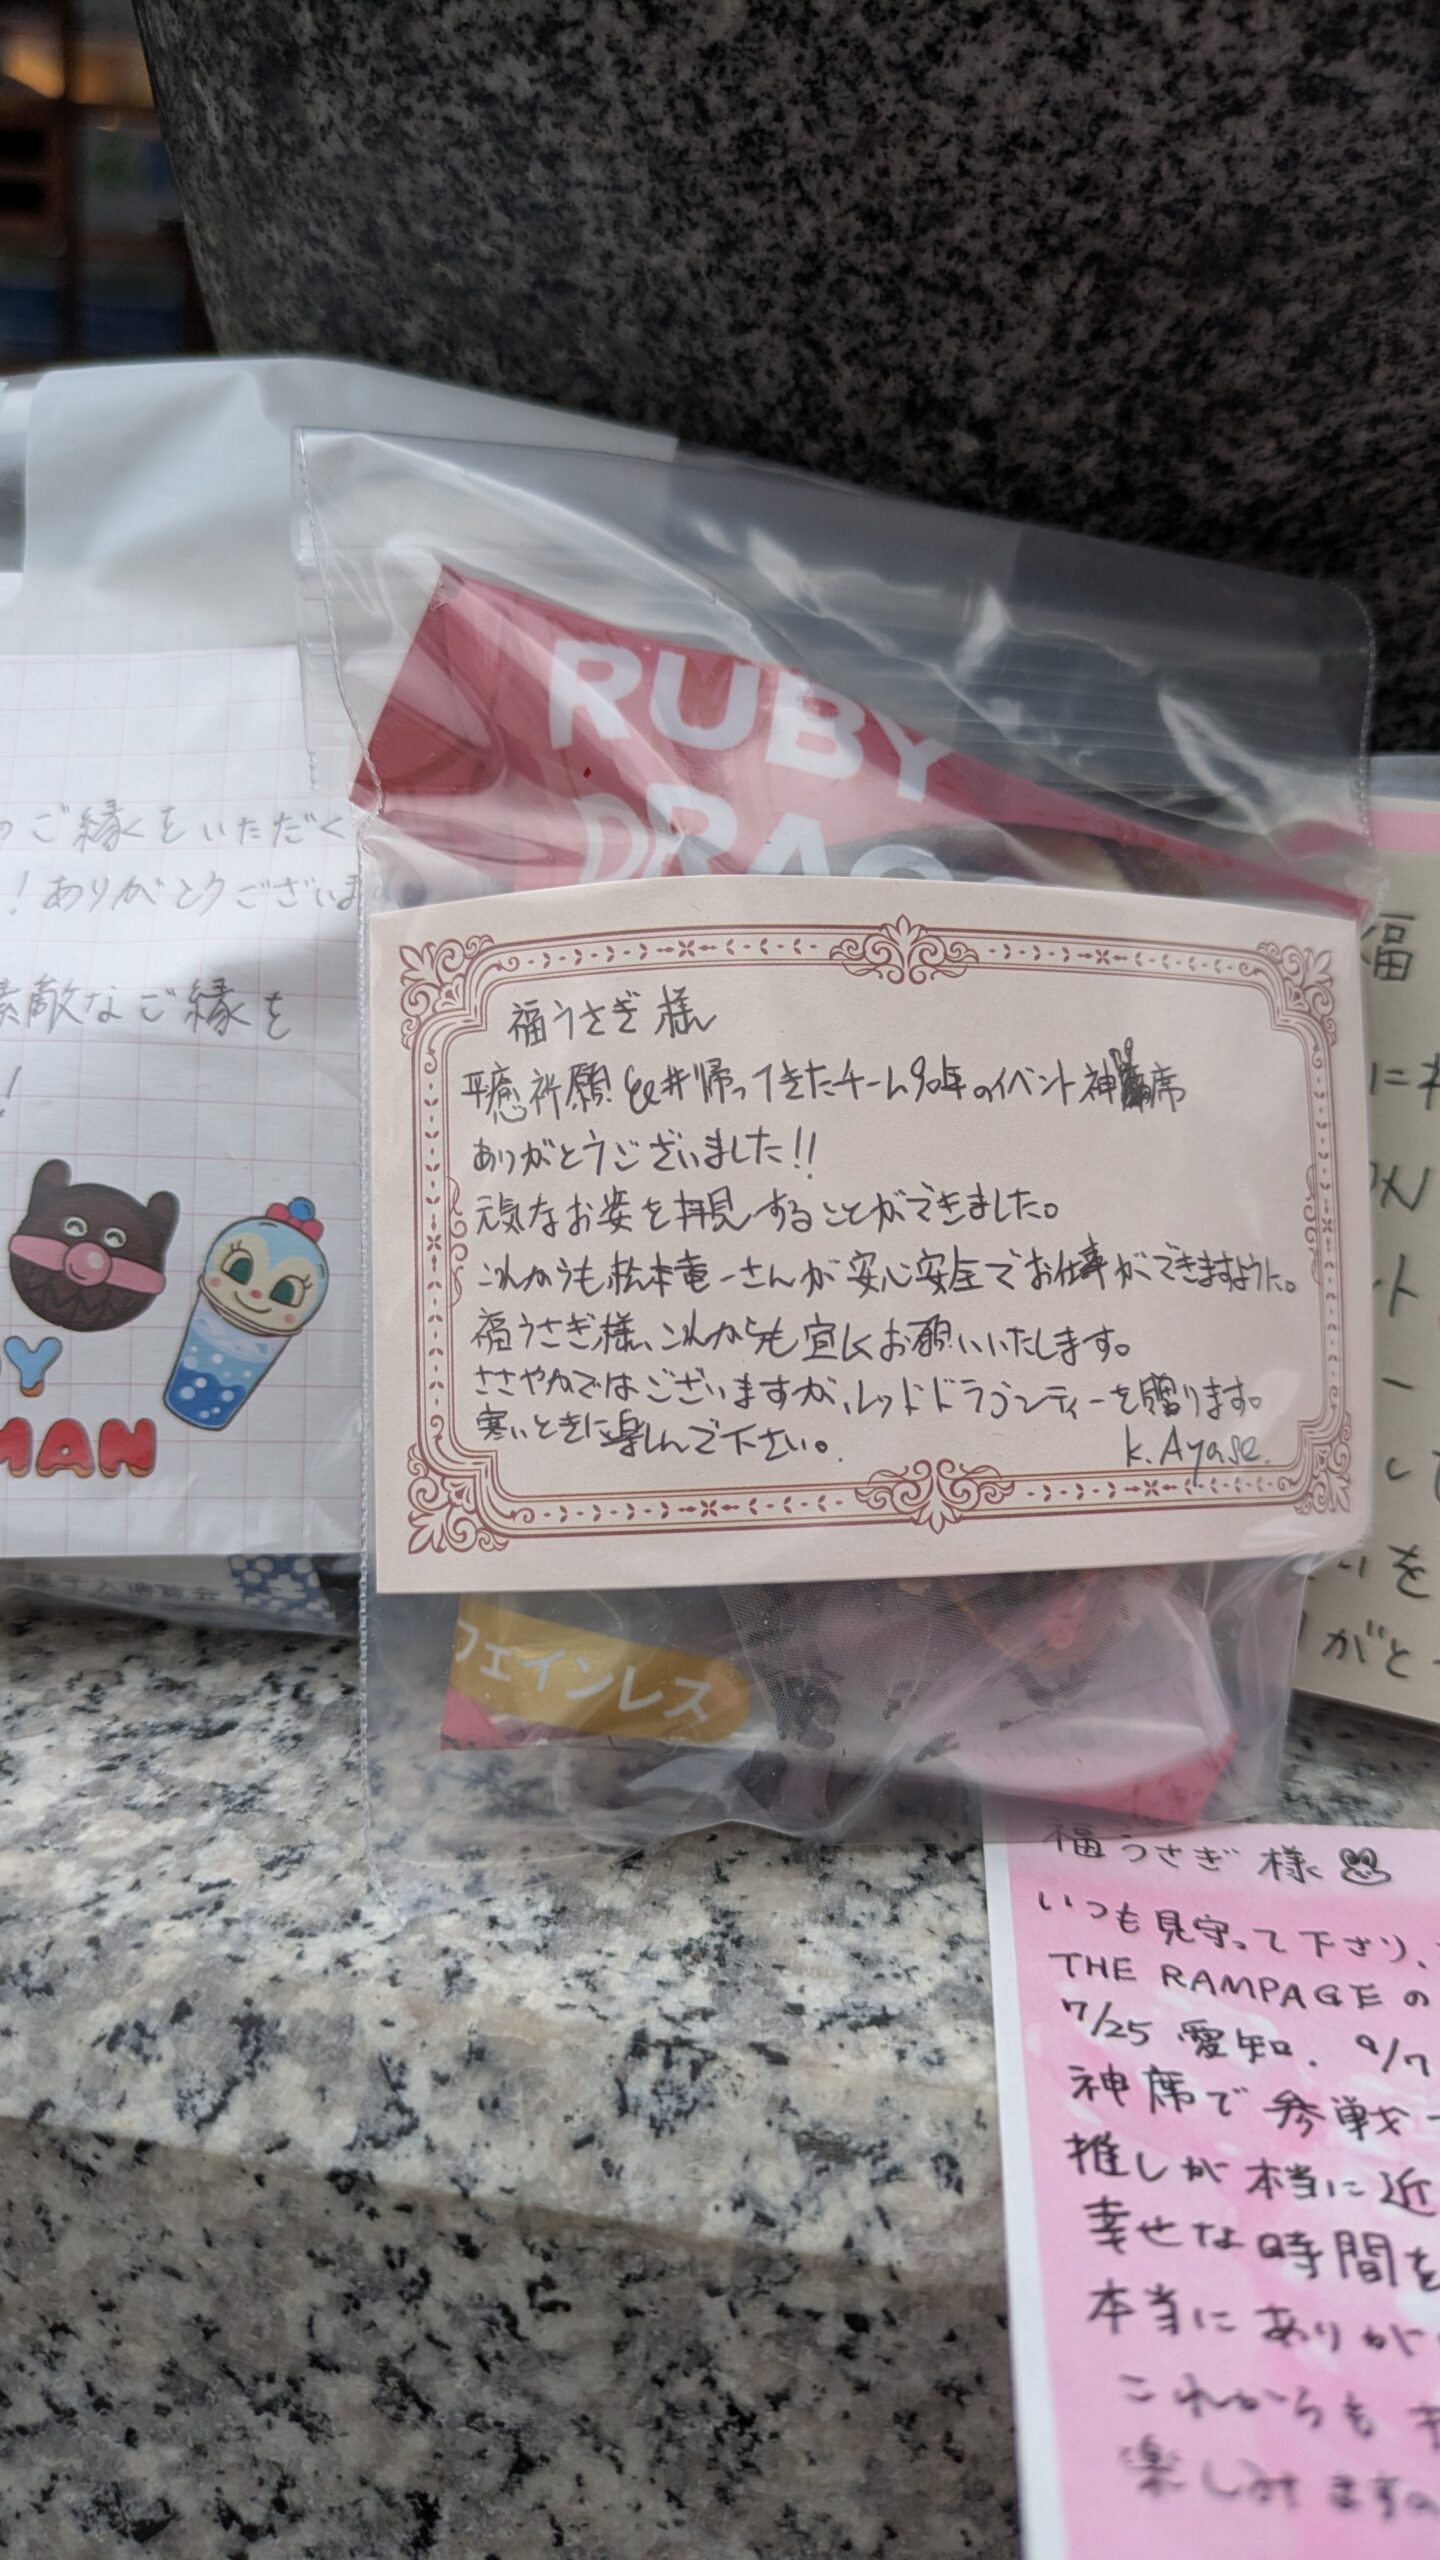 のご縁をいただく
！ありがとうございま
素敵なご縁を
！
Y
MAN
RUBY
DRAGO
福うさぎ様
平癒祈願&#帰ってきたチーム90年のイベント神席
ありがとうございました!!
元気なお姿を拝見することができました。
これからも松本竜一さんが安心安全でお仕事ができますように。
福うさぎ様、これからも宜しくお願いいたします。
ささやかではございますが、レッドドラゴンティーを贈ります。
寒いときに楽しんで下さい。
K.Ayase.
フェインレス
福
ト
ー
いを
がと
福うさぎ様
いつも見守って下さり、
THE RAMPAGEの
7/25 愛知. 9/7
神席で参戦
推しが本当に近
幸せな時間を
本当にありが
これからも
楽しみますの